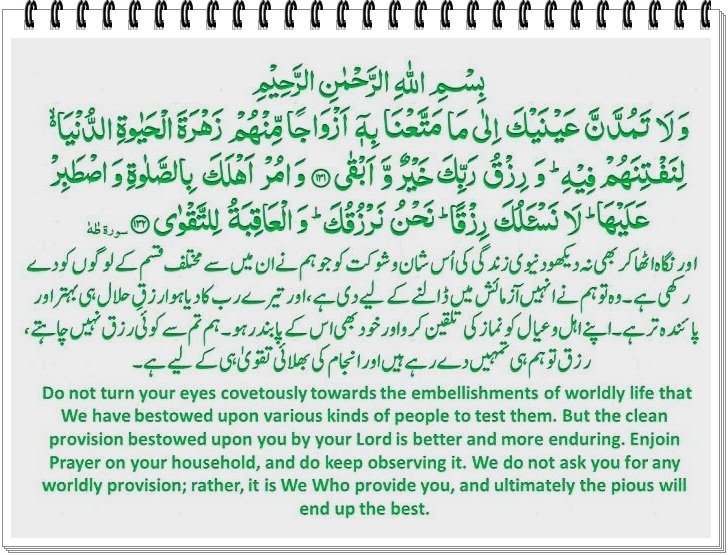 بِسْمِ اللهِ الرَّحْمٰنِ الرَّحِيْمِ
وَلَا تَمُدَّنَّ عَيْنَيْكَ اِلٰى مَا مَتَّعْنَا بِهٖۤ اَزْوَاجًا مِّنْهُمْ زَهْرَةَ الْحَيٰوةِ الدُّنْيَا ۙ
لِنَفْتِنَهُمْ فِيْهِ ؕ وَ رِزْقُ رَبِّكَ خَيْرٌ وَّ اَبْقٰى ﴿۱۳۱﴾ وَ اْمُرْ اَهْلَكَ بِالصَّلٰوةِ وَ اصْطَبِرْ
عَلَيْهَا ؕ لَا نَسْـَٔلُكَ رِزْقًا ؕ نَحْنُ نَرْزُقُكَ ؕ وَ الْعَاقِبَةُ لِلتَّقْوٰى ﴿۱۳۲﴾ سورة طٰهٰ
اور نگاہ اٹھا کر بھی نہ دیکھو دنیوی زندگی کی اُس شان و شوکت کو جو ہم نے ان میں سے مختلف قسم کے لوگوں کو دے
رکھی ہے۔ وہ تو ہم نے انہیں آزمائش میں ڈالنے کے لیے دی ہے، اور تیرے رب کا دیا ہوا رزقِ حلال ہی بہتر اور
پائندہ تر ہے۔ اپنے اہل و عیال کو نماز کی تلقین کرو اور خود بھی اس کے پابند رہو۔ ہم تم سے کوئی رزق نہیں چاہتے،
رزق تو ہم ہی تمہیں دے رہے ہیں اور انجام کی بھلائی تقویٰ ہی کے لیے ہے۔
Do not turn your eyes covetously towards the embellishments of worldly life that
We have bestowed upon various kinds of people to test them. But the clean
provision bestowed upon you by your Lord is better and more enduring. Enjoin
Prayer on your household, and do keep observing it. We do not ask you for any
worldly provision; rather, it is We Who provide you, and ultimately the pious will
end up the best.